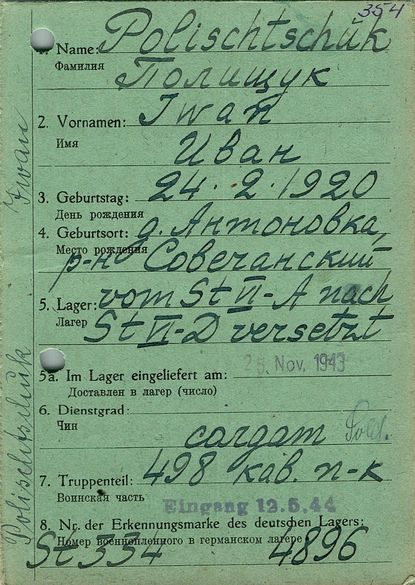 354
1. Name: Polischtschük
Фамилия Полищук
2. Vornamen: Iwan
Имя Иван
3. Geburtstag: 24.2.1920
День рождения
4. Geburtsort: д. Антоновка,
Место рождения
р-н Совечанский
5. Lager: vom St VI-A nach
Лагерь St VI-D versetzt
5a. Im Lager eingeliefert am: 25. Nov. 1943
Доставлен в лагерь (число)
6. Dienstgrad:
Чин солдат Sold.
7. Truppenteil: 498 кав. п-к
Воинская часть
Eingang 12.5.44
8. Nr. der Erkennungsmarke des deutschen Lagers:
Номер военнопленного в германском лагере
St 334 4896
Polischtschük Iwan